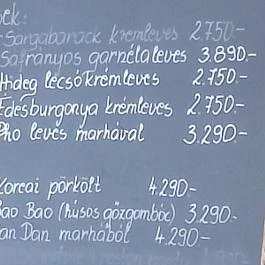 ek:
Sárgabarack krémleves 2.750-
Safrányos garnélaleves 3.890.-
Hideg lecsó krémleves 2.750.-
Édesburgonya krémleves 2.750.-
Pho leves marhával 3.290.-
Koreai pörkölt 4.290-
Bao Bao (húsos gőzgombóc) 3.290.-
Dan Dan marhából 4.290-